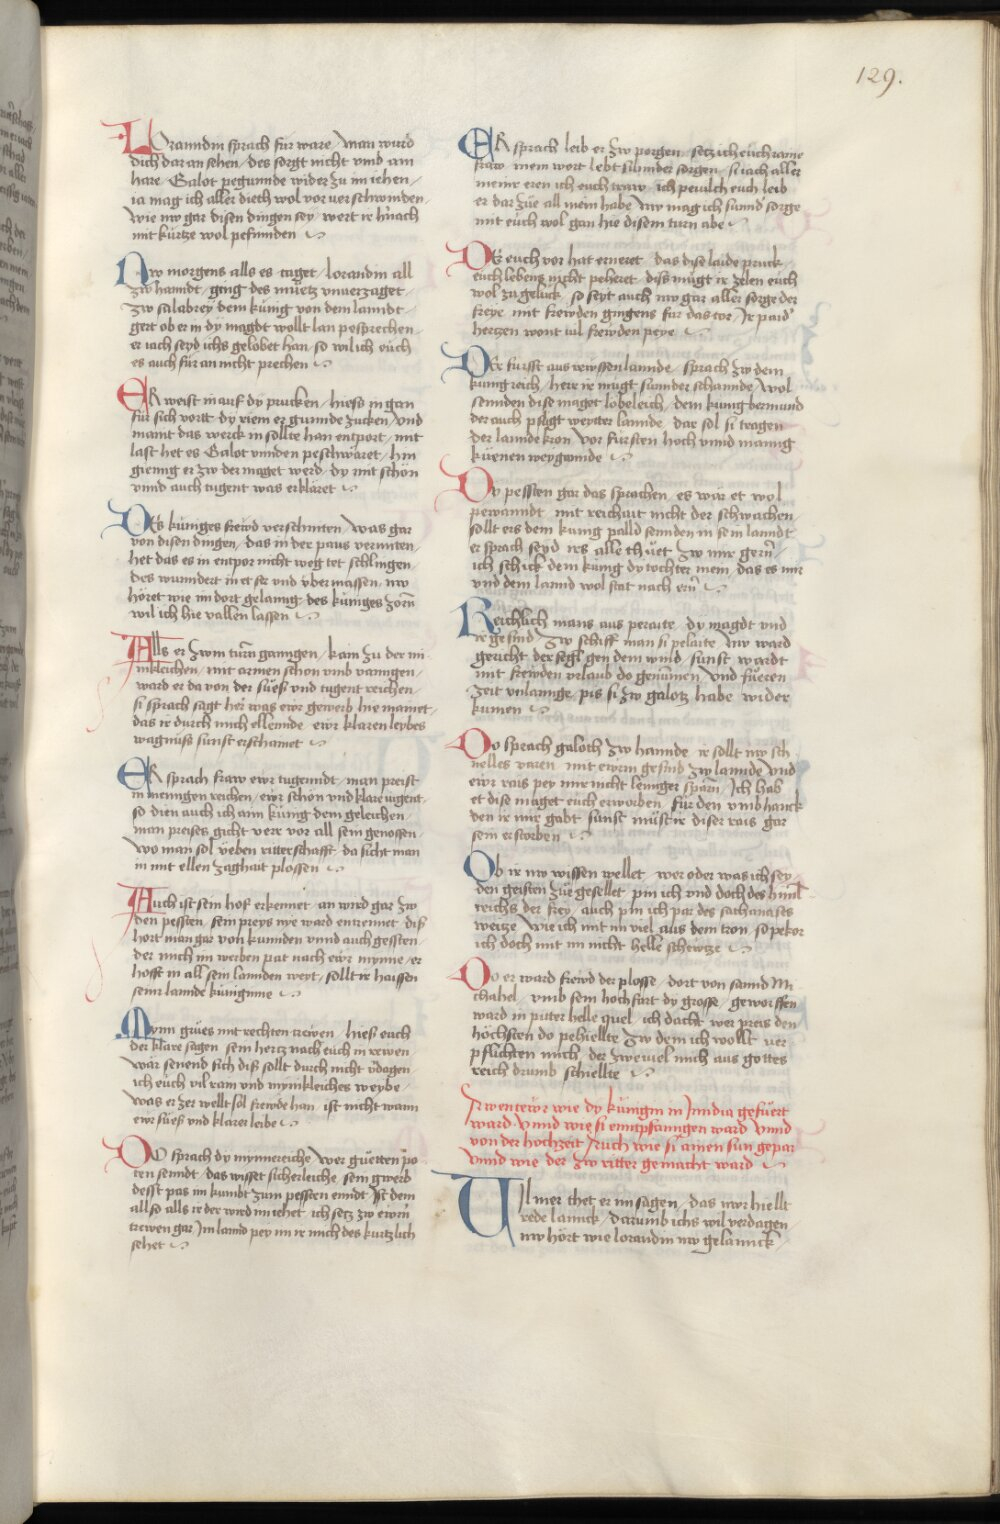 129.
Loranndin sprach für ware / man wurd
dich dar an sehen / des sorgt nicht vmb am
hare / Galot pegunnde wider zu im iehen /
ia mag ich aller dieth wol vor verschwinden /
wie nw gar disen dingen sey / wert ir hinach
mit kürtze wol pefinnden
Nw morgens alls es taget / lorandin all
zw hanndt / ging des müetz vnuerzaget /
zw salabrey dem künig von dem lanndt /
gert ob er in dy magdt wollt lan pesprechen /
er iach seyd ichs gelobet han / so wil ich euch
es auch für an nicht prechen
ER weist in auf dy prucken / hiess in gan
für sich vortt / dy riem er gunnde zucken / vnd
maint das werck in sollte han entport / mit
last het es Galot vnnden peschwäret / hin
gienng er zw der maget werd / dy mit schön
vnnd auch tugent was erkläret
Des küniges frewd verschriten / was gar
von disen dingen / das in der paus vermiten /
het das es in entpor nicht weg tet schlingen /
des wunndert in et ser vnd vbermassen / nw
höret wie im dort gelanng / des küniges zorn
wil ich hie vallen lassen
Alls er zwm turn ganngen / kam zu der mi
nikleichen / mit armen schon vmb vanngen /
ward er da von der süess vnd tugent reichen /
si sprach sagt her was ewr gewerb hie mainet /
das ir durch mich ellennde / ewr klaren leybes
wagnüss sunst erschainet
ER sprach fraw ewr tugenndt / man preist
in mengen reichen / ewr schön vnd klare iugent /
so dien auch ich aim künig dem geleichen /
man preises gicht verr vor all sein genossen /
wo man sol veben ritterschafft / da sicht man
in mit ellen zaghait plossen
Auch ist sein hof erkennet / an wird gar zw
den pessten / sein preys nye ward entrennet / diss
hort man gar von kunnden vnnd auch gessten /
der mich im werben pat nach ewr mynne / er
hofft in all sein lannden weyt / sollt ir haissen
seinr lannde küniginne
Mynn grües mit rechten trewen / hiess euch
der klare sagen / sein hertz nach euch in rewen
wär senend sich diss sollt durch nicht vdagen
ich euch vil rain vnd mynikleiches weybe /
was er zer wellt sol frewde han / ist nicht wann
ewr süess vnd klarer leibe
DO sprach dy mynnereiche / wer guetten po
ten senndt / das wisset sicherleiche / sein gwerb
desst pas im kumbt zum pessten ennd / Ist dem
all so alls ir der wird im iehet / ich setz zw ewrn
trewen gar / Im lannd pey im ir mich des kurtzlich
sehet
ER sprach leib er zw porgen / setz ich euch raine
fraw / mein wort lebt sunnder sorgen / si iach aller
meinr eren ich euch traw / ich pevilch euch leib
er dar züe all mein habe / nw mag ich sunnd' sorge
mit euch wol gan hie disem turn abe
DEr euch vor hat erneret / das dise laide pruck /
euch lebens nicht peheret / diss mügt ir zelen euch
wol zu gelück / so seyt auch nw gar aller sorge der
freye / mit frewden gingens für das tor / Ir paid'
hertzen wont vil frewden peye
DEr fürsst aus rewssen lannde / sprach zw dem
künig reich / herr ir mügt sunnder schannde / wol
sennden dise maget lobeleich / dem künig bermund
der auch pfligt weytter lannde / dar sol si tragen
der lannde kron / vor fürsten hoch vnnd manig
küenen weygannde
Dy pessten gar das sprachen / es wär et wol
pewanndt / mit reichait nicht der schwachen /
sollt ers dem künig palld sennden in sein lanndt
er sprach seyd irs alle thuet / zw mir gern /
ich schick dem künig dy tochter mein / das es mir
vnd dem lannd wol stat nach ern
Reichlich mans aus peraite / dy magdt vnd
ir gesind / zw schiff man si pelaite / nw ward
gericht der segl gen dem wind / sunst wardt
mit frewden vrlaub do genumen / vnd fueren
zeit vnlannge / pis si zw galotz habe wider
kumen
Do sprach galoth zw hannde / ir sollt nw sch
nelles varen / mit ewrm gesind zw lannde / vnd
ewr rais pey mir nicht lennger sparn / Ich hab
et dise maget euch erworben / für den vmbhanck
den ir mir gabt / sunst müst ir diser rais gar
sein erstorben
Ob ir nw wissen wellet / wer oder was ich sey
den geisten züe gesellet / pin ich vnd doch des himl
reichs der frey / auch pin ich par des sathanases
weitze / wie ich mit im viel aus dem tron / so pekor
ich doch mit im nicht helle schwitze
Do er ward frewd der plosse / dort von sannd Mi
chahel / vmb sein hochfart dy grosse / geworffen
ward in pitter helle quel / ich dacht wer preis den
höchsten do pehiellte / zw dem ich wollt ver
pflichten mich / der zweiuel mich aus gottes
reich drumb schiellte
Awentewr wie dy künigin in Inndia gefuert
ward / vnnd wie si emmpfanngen ward / vnnd
von der hochzeit / Auch wie si ainen sun gepar
vnnd wie der zw ritter gemacht ward
Vil mer thet er im sagen / das wir hiellt
rede lannck / darumb ichs wil verdagen /
nw hört wie lorandin nw gelannck /